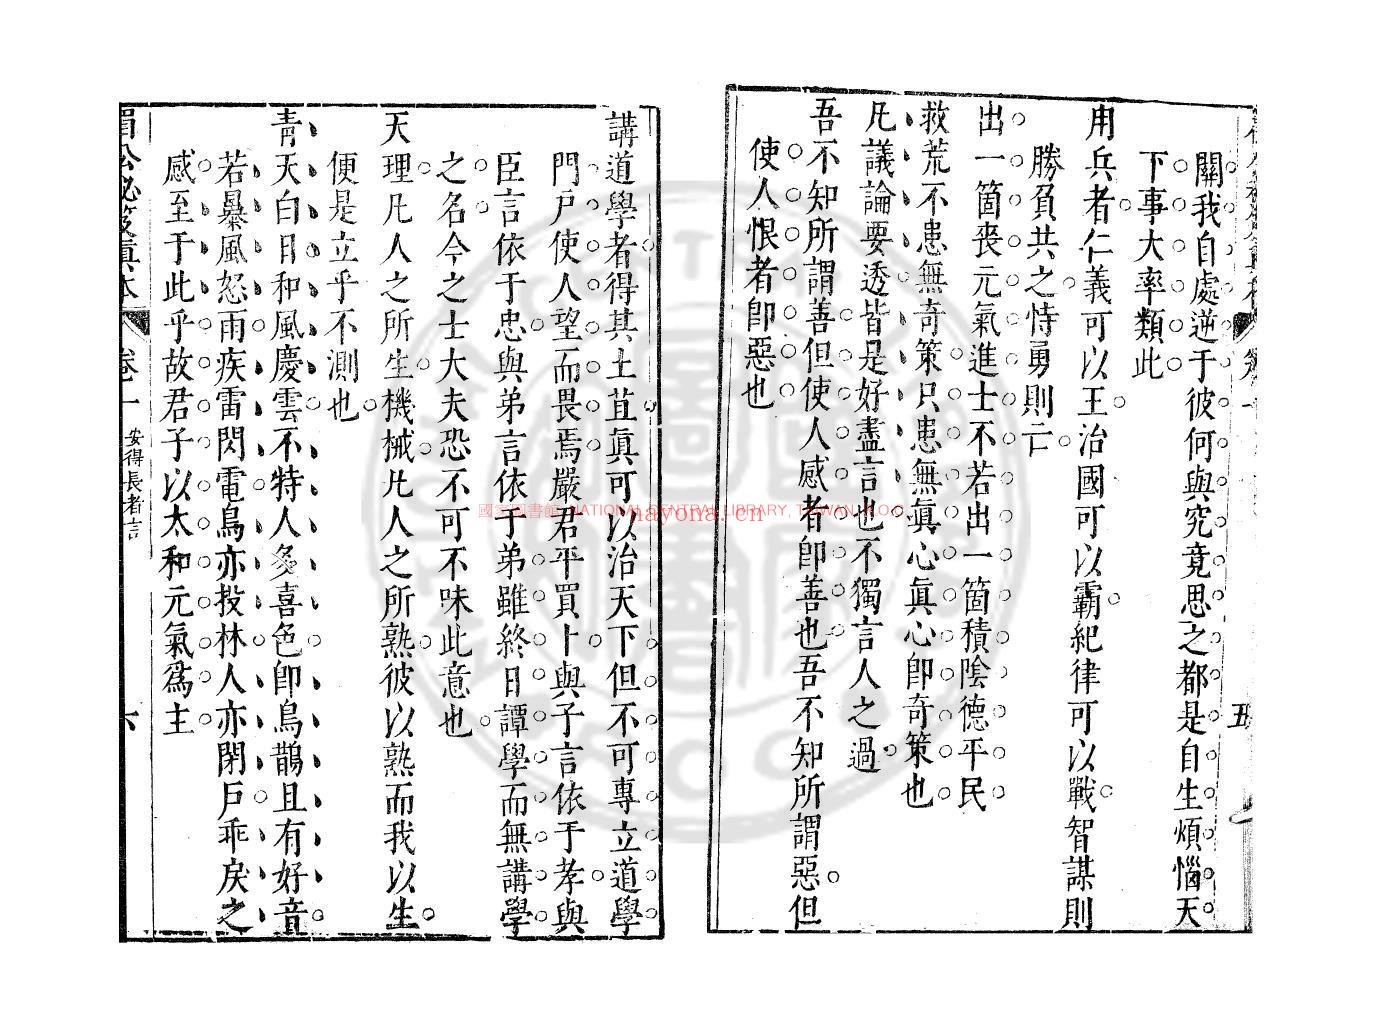 關我自處逆于彼何與究竟思之都是自生煩惱天
下事大率類此
用兵者仁義可以王治國可以霸紀律可以戰智謀則
勝負共之恃勇則亡
出一箇喪元氣進士不若出一箇積陰德平民
救荒不患無奇策只患無真心真心卽奇策也
凡議論要透皆是好盡言也不獨言人之過
吾不知所謂善但使人感者卽善也吾不知所謂惡但
使人恨者卽惡也
五
講道學者得其土苴真可以治天下但不可專立道學
門戶使人望而畏焉嚴君平買卜與子言依于孝與
臣言依于忠與弟言依于弟雖終日譚學而無講學
之名今之士大夫恐不可不味此意也
天理凡人之所生機械凡人之所熟彼以熟而我以生
便是立乎不測也
青天白日和風慶雲不特人多喜色卽鳥鵲且有好音
若暴風怒雨疾雷閃電鳥亦投林人亦閉戶乖戾之
感至于此乎故君子以太和元氣爲主
眉公祕笈真本 卷一 安得長者言 六
國家圖書館 NATIONAL CENTRAL LIBRARY, TAIWAN, R.O.C.
nayona.cn